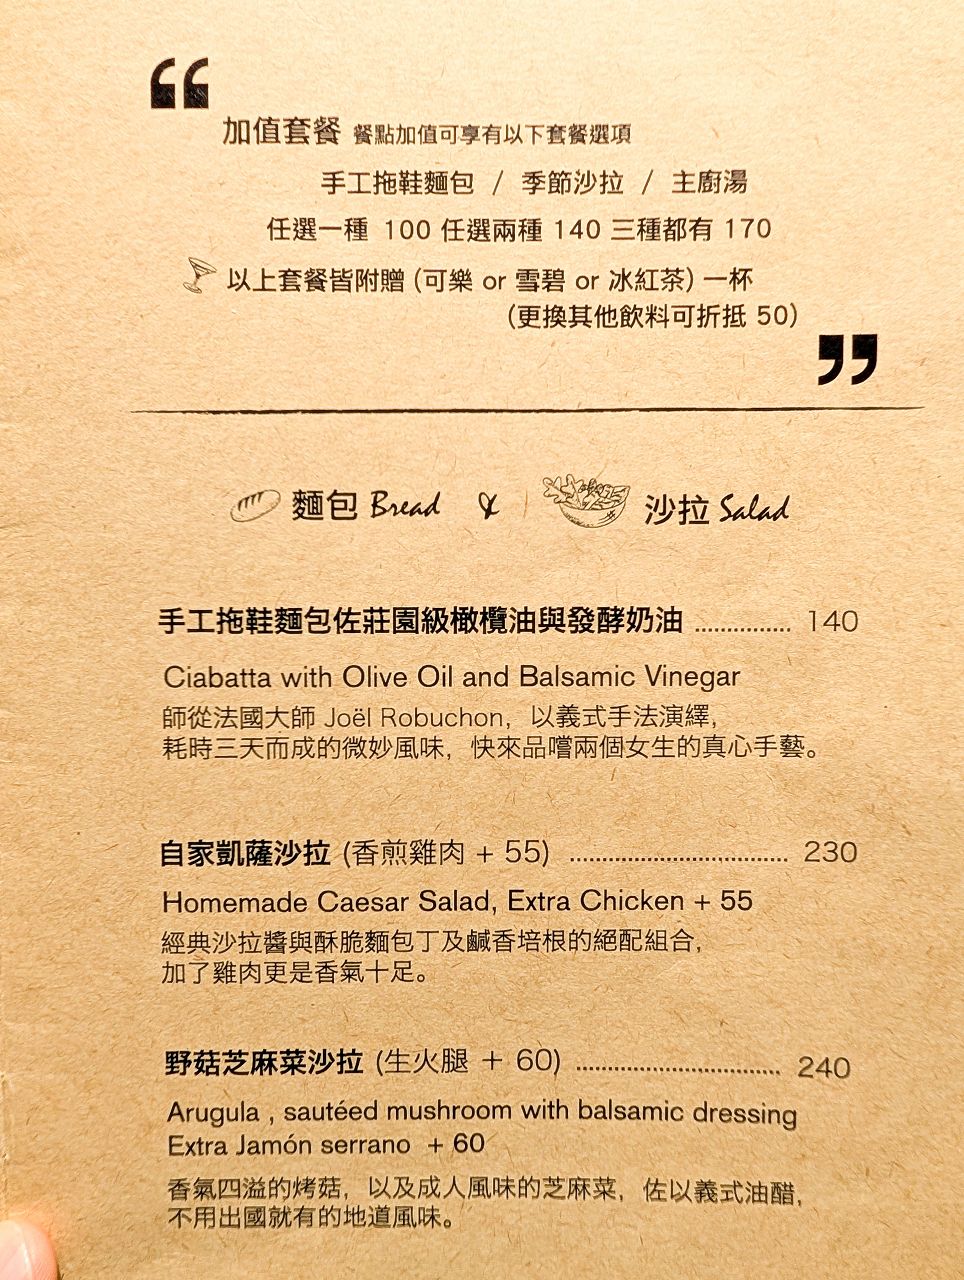 “
加值套餐 餐點加值可享有以下套餐選項
手工拖鞋麵包 / 季節沙拉 / 主廚湯
任選一種 100 任選兩種 140 三種都有 170
以上套餐皆附贈 (可樂 or 雪碧 or 冰紅茶) 一杯
(更換其他飲料可折抵 50)
”
麵包 Bread & 沙拉 Salad
手工拖鞋麵包佐莊園級橄欖油與發酵奶油 ............... 140
Ciabatta with Olive Oil and Balsamic Vinegar
師從法國大師 Joël Robuchon，以義式手法演繹，
耗時三天而成的微妙風味，快來品嚐兩個女生的真心手藝。
自家凱薩沙拉 (香煎雞肉 + 55) .................................. 230
Homemade Caesar Salad, Extra Chicken + 55
經典沙拉醬與酥脆麵包丁及鹹香培根的絕配組合，
加了雞肉更是香氣十足。
野菇芝麻菜沙拉 (生火腿 + 60) ................................ 240
Arugula , sautéed mushroom with balsamic dressing
Extra Jamón serrano + 60
香氣四溢的烤菇，以及成人風味的芝麻菜，佐以義式油醋，
不用出國就有的地道風味。